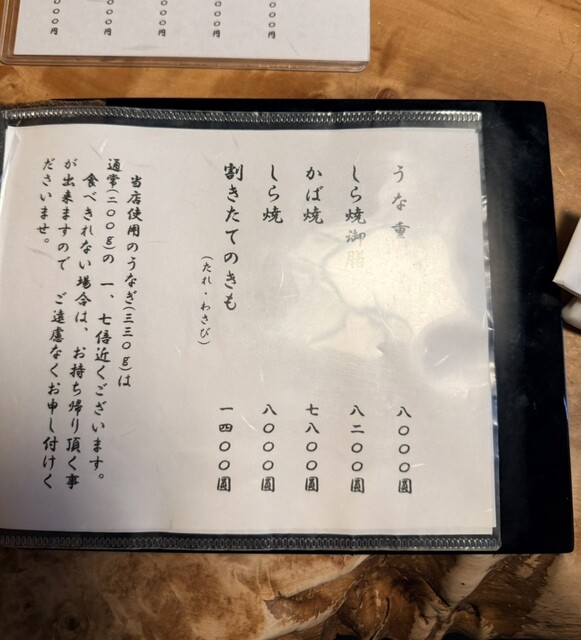 うな重 八〇〇〇圓
しら焼御膳 八二〇〇圓
かば焼 七八〇〇圓
しら焼 八〇〇〇圓
割きたてのきも 一四〇〇圓
(たれ・わさび)
当店使用のうなぎ(三三〇g)は
通常(二〇〇g)の一、七倍近くございます。
食べきれない場合は、お持ち帰り頂く事
が出来ますので ご遠慮なくお申し付けく
ださいませ。
〇〇〇円
〇〇〇円
〇〇円
〇〇円
〇〇〇円